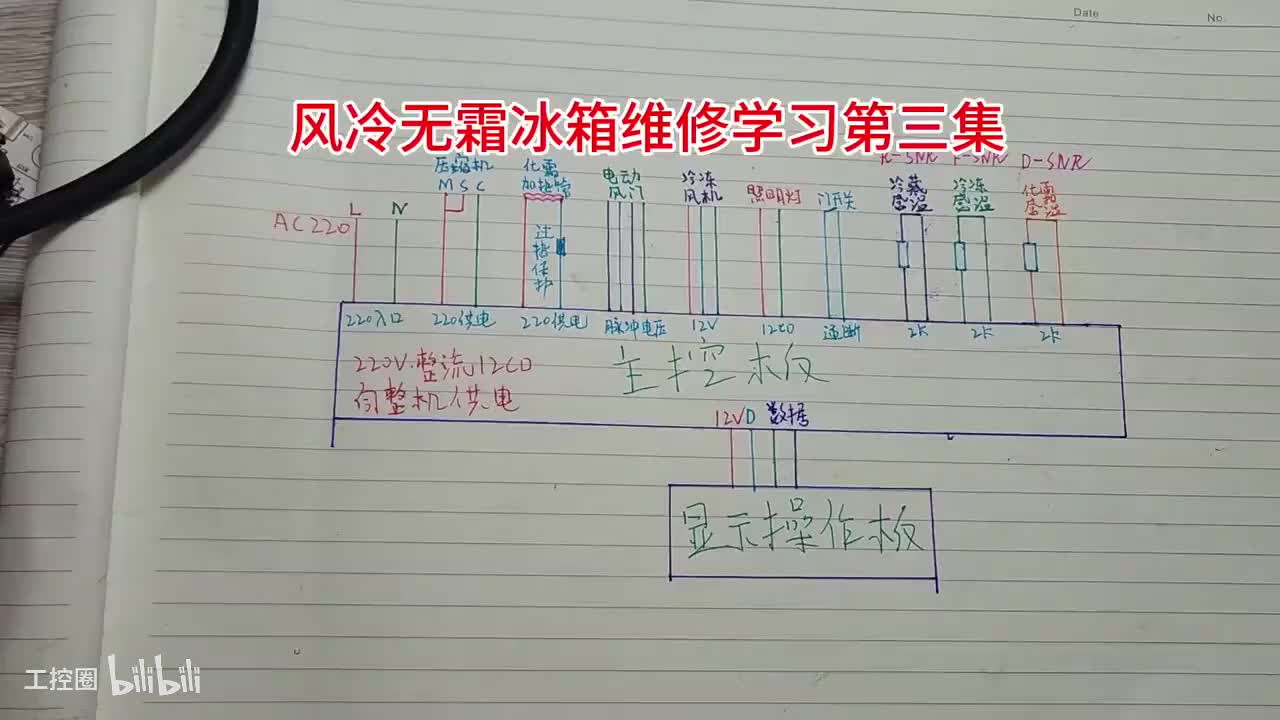 Date No.
风冷无霜冰箱维修学习第三集
R-SNR F-SNR D-SNR
压缩机 化霜 电动 冷冻 照明灯 门开关 冷藏 冷冻 化霜
M S C 加热管 风门 风机 感温 感温 感温
AC220 L N
过
热
保
护
220入口 220供电 220供电 脉冲电压 12V 12CD 通断 2K 2K 2K
220V.整流12CD 主控板
向整机供电
12VD 数据
显示操作板
工控圈 bilibili